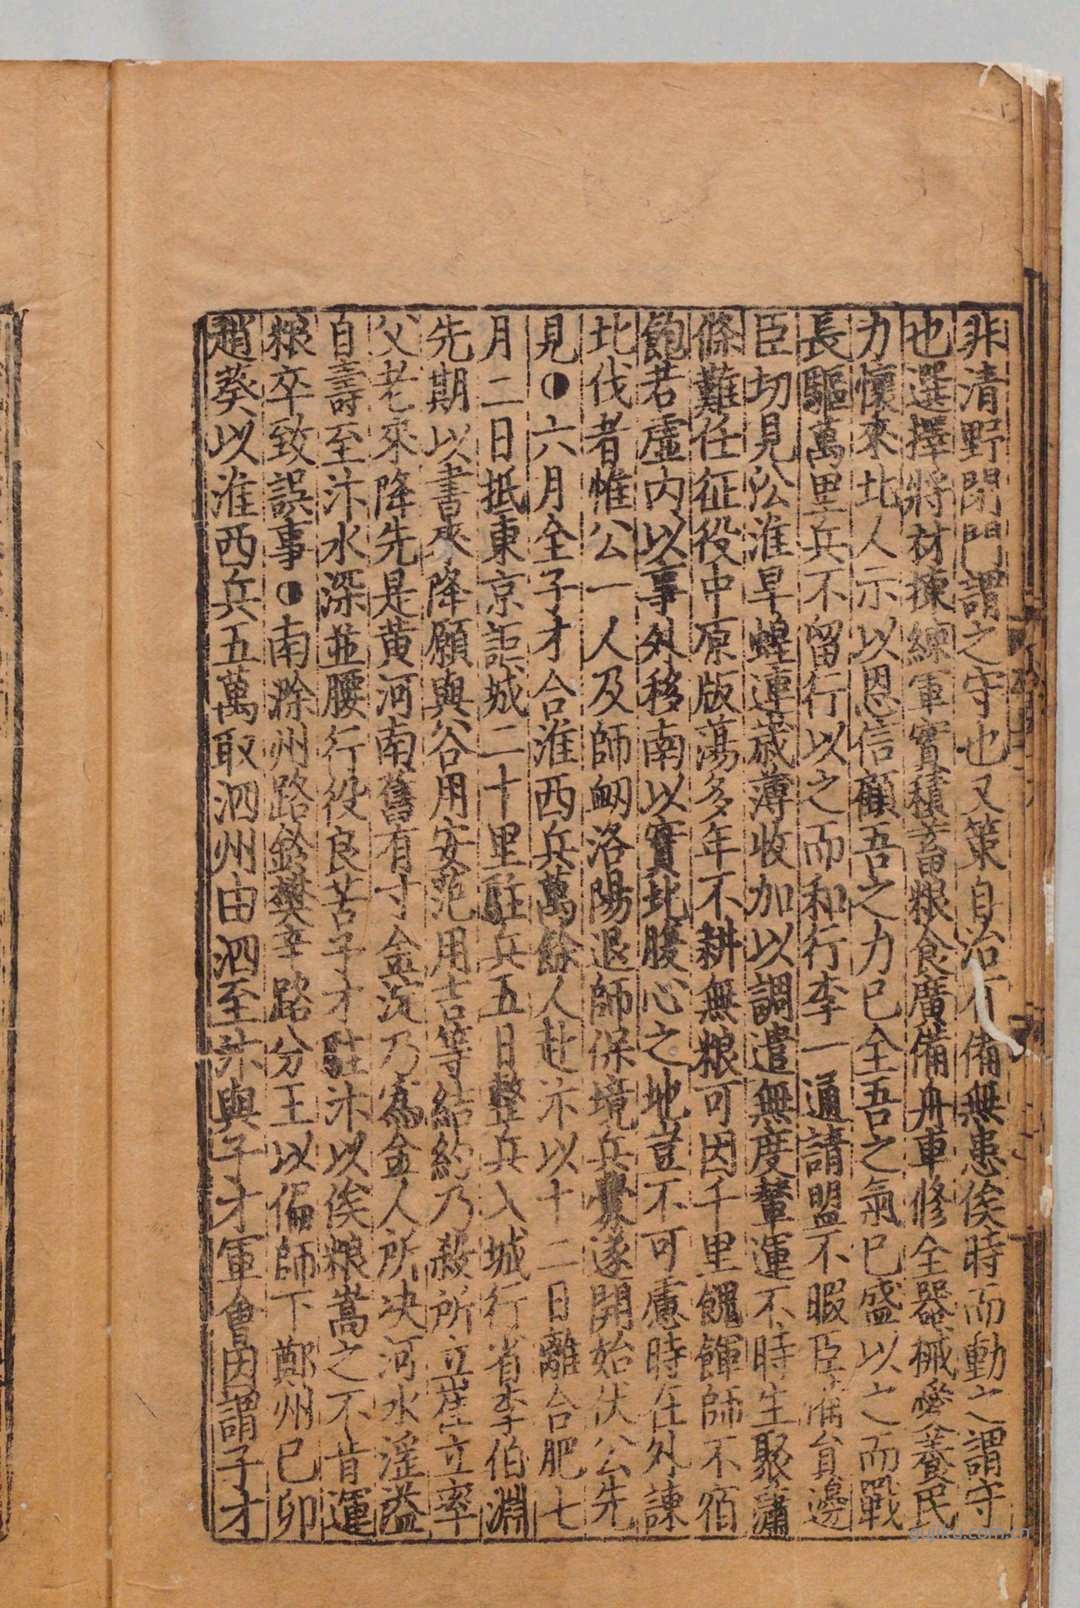 非清野閉門謂之守也又策自治有備無患俟時而動之謂守
也選擇將材揀練軍實積蓄粮食廣備舟車修全器械愛養民
力懷來北人示以恩信顧吾之力已全吾之氣已盛以之而戰
長驅萬里兵不留行以之而和行李一通請盟不暇臣備員邊
臣切見沿淮旱蝗連歲薄收加以調遣無度輦運不時生聚蕭
條難任征役中原版蕩多年不耕無粮可因千里餽餫師不宿
飽若虛内以事外移南以實北腹心之地豈不可慮時在外諫
北伐者惟公一人及師衂洛陽退師保境兵釁遂開始伏公先
見◑六月全子才合淮西兵萬餘人赴汴以十二日離合肥七
月二日抵東京距城二十里駐兵五日整兵入城行省李伯淵
先期以書來降願與谷用安范用吉等結約乃殺所立崔立率
父老來降先是黄河南舊有寸金淀乃為金人所决河水淫溢
自壽至汴水深並腰行役良苦子才駐汴以俟粮嵩之不肯運
粮卒致誤事◑南滁州路鈐樊辛路分王以偏師下鄭州已卯
趙葵以淮西兵五萬取泗州由泗至汴與子才軍會因謂子才